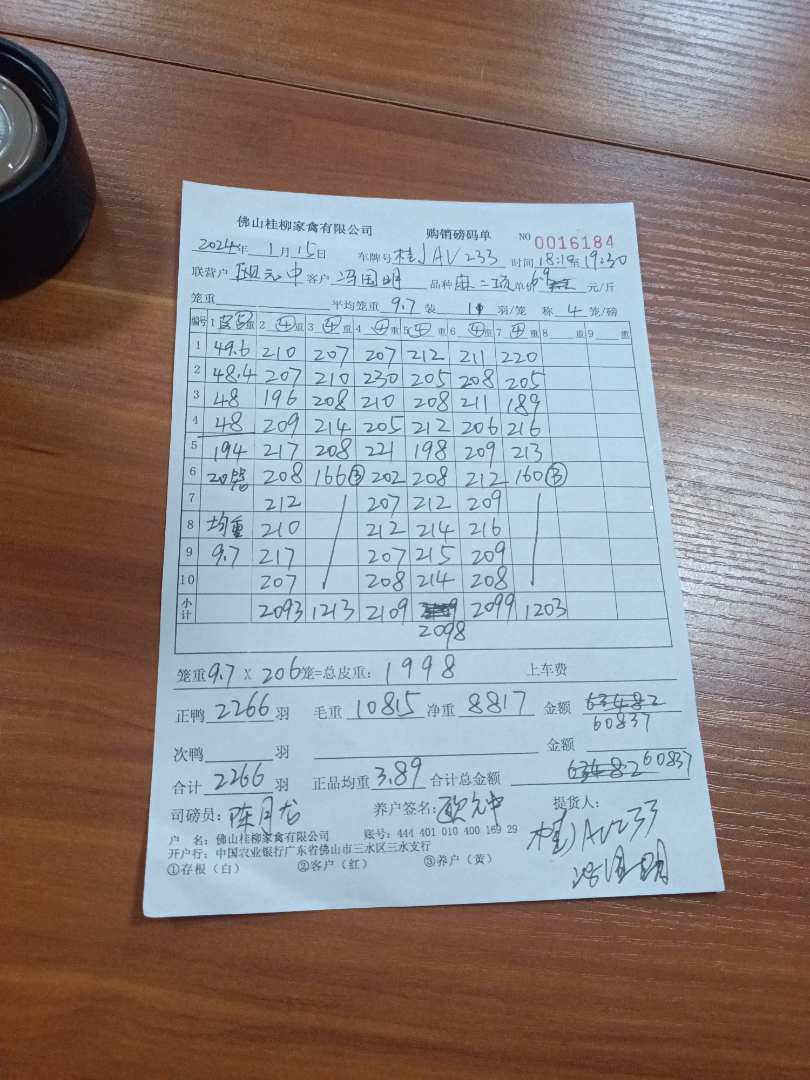 佛山桂柳家禽有限公司 购销磅码单 NO 0016184
2024年 1月 15日 车牌号 桂JAV233 时间 18:19至19:30
联营户 元中 客户 冯国明 品种 麻二 单价 6.9 元/斤
笼重 平均笼重 9.7 装 11 羽/笼 称 4 笼/磅
编号 1 重 2 ④重 3 ④重 4 ④重 5 ④重 6 ④重 7 ④重 8 重 9 重
1 49.6 210 207 207 212 211 220
2 48.4 207 210 230 205 208 205
3 48 196 208 210 208 211 189
4 48 209 214 205 212 206 216
5 194 217 208 221 198 209 213
6 20 208 166③ 202 208 212 160③
7 212 207 212 209
8 均重 210 212 214 216
9 9.7 217 207 215 209
10 207 208 214 208
小计 2093 1213 2109 2099 1203
2098
笼重 9.7 X 206 笼=总皮重: 1998 上车费
正鸭 2266 羽 毛重 10815 净重 8817 金额 63482
60837
次鸭 羽 金额
合计 2266 羽 正品均重 3.89 合计总金额 63482 60837
司磅员: 陈月龙 养户签名: 元中 提货人:
桂JAV233
冯国明
户 名: 佛山桂柳家禽有限公司 账号: 444 401 010 400 169 29
开户行: 中国农业银行广东省佛山市三水区三水支行
①存根（白） ②客户（红） ③养户（黄）